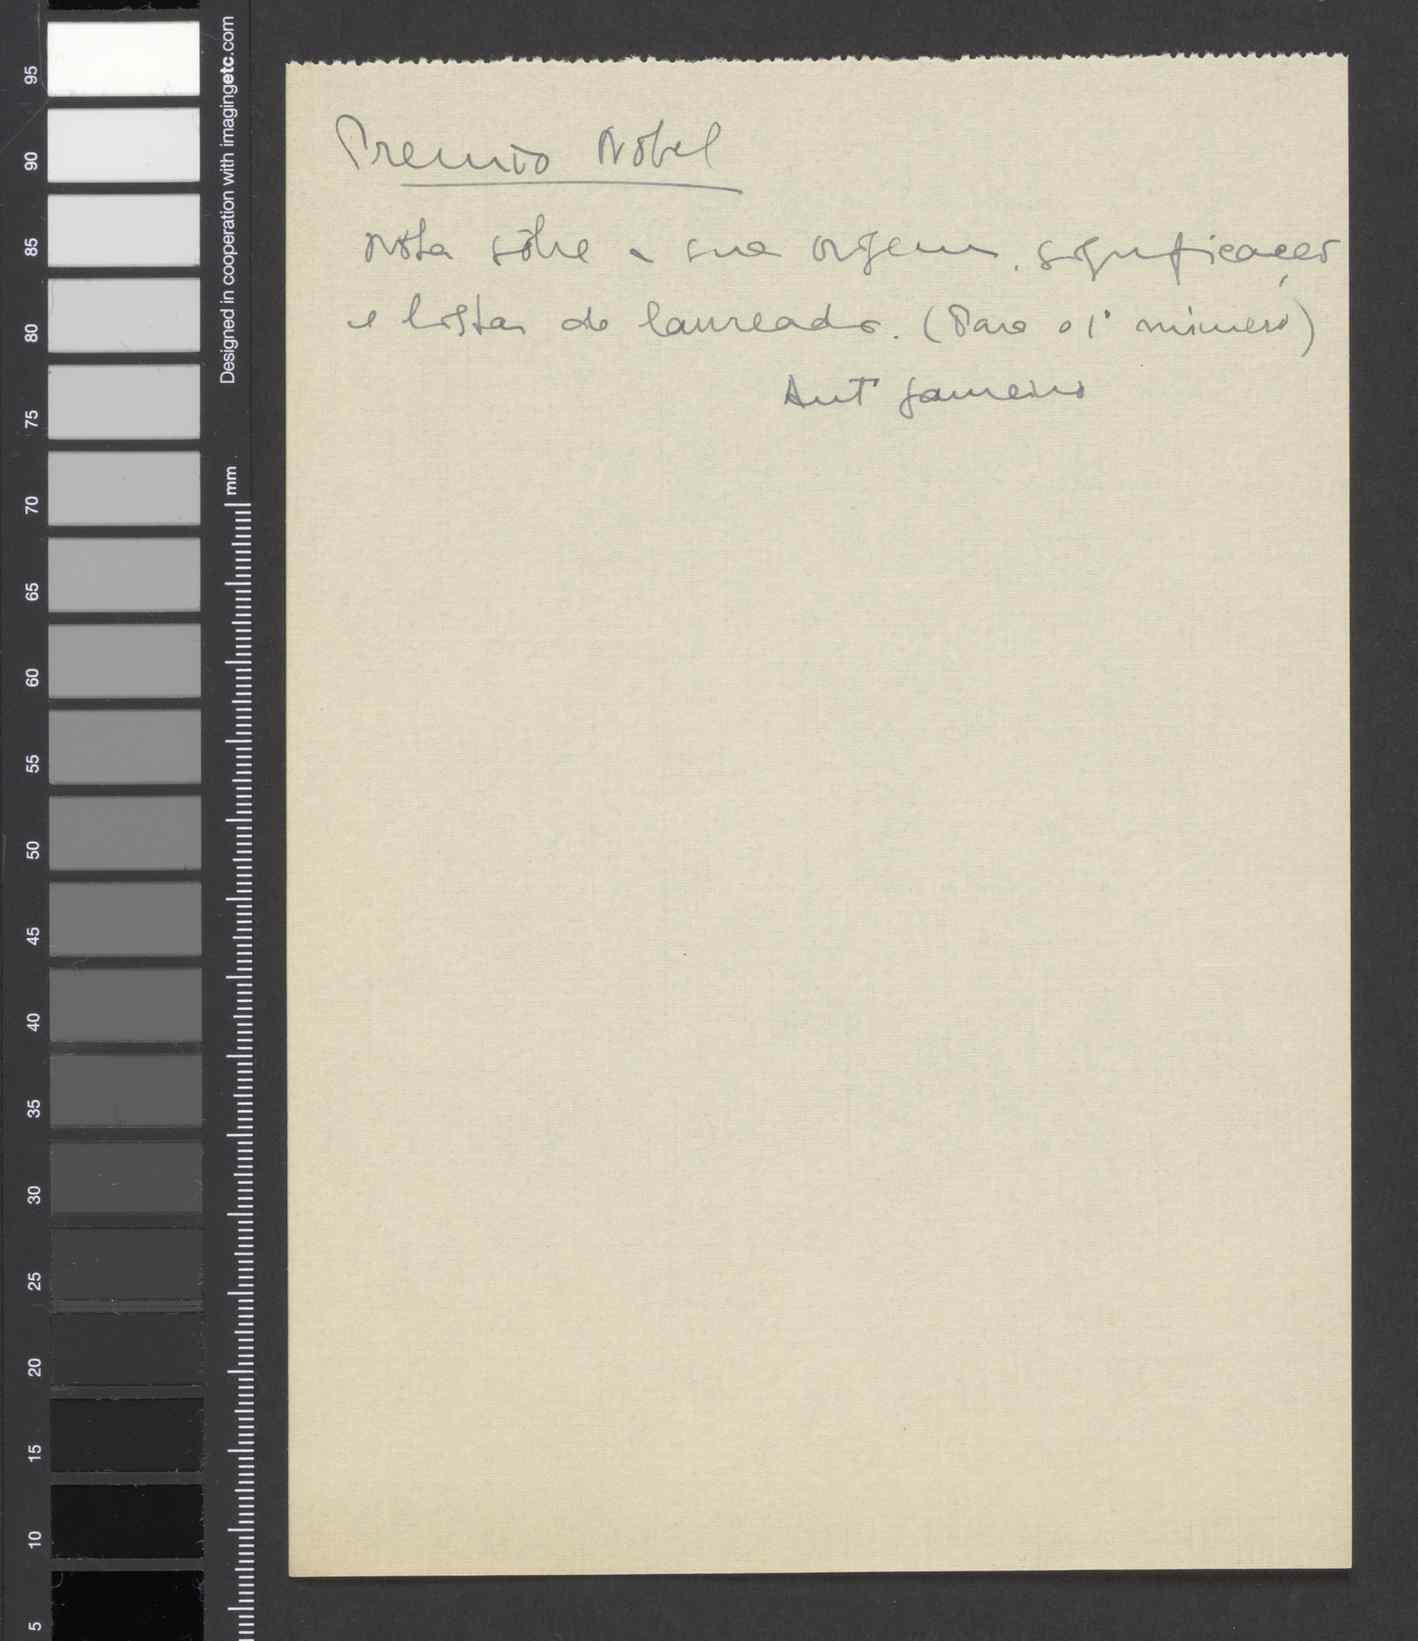 Premio Nobel
Nota sôbre a sua origem, significação
e listas de laureados. (Para o 1º número)
Antº Gameiro
Designed in cooperation with imagingetc.com
mm
95
90
85
80
75
70
65
60
55
50
45
40
35
30
25
20
15
10
5